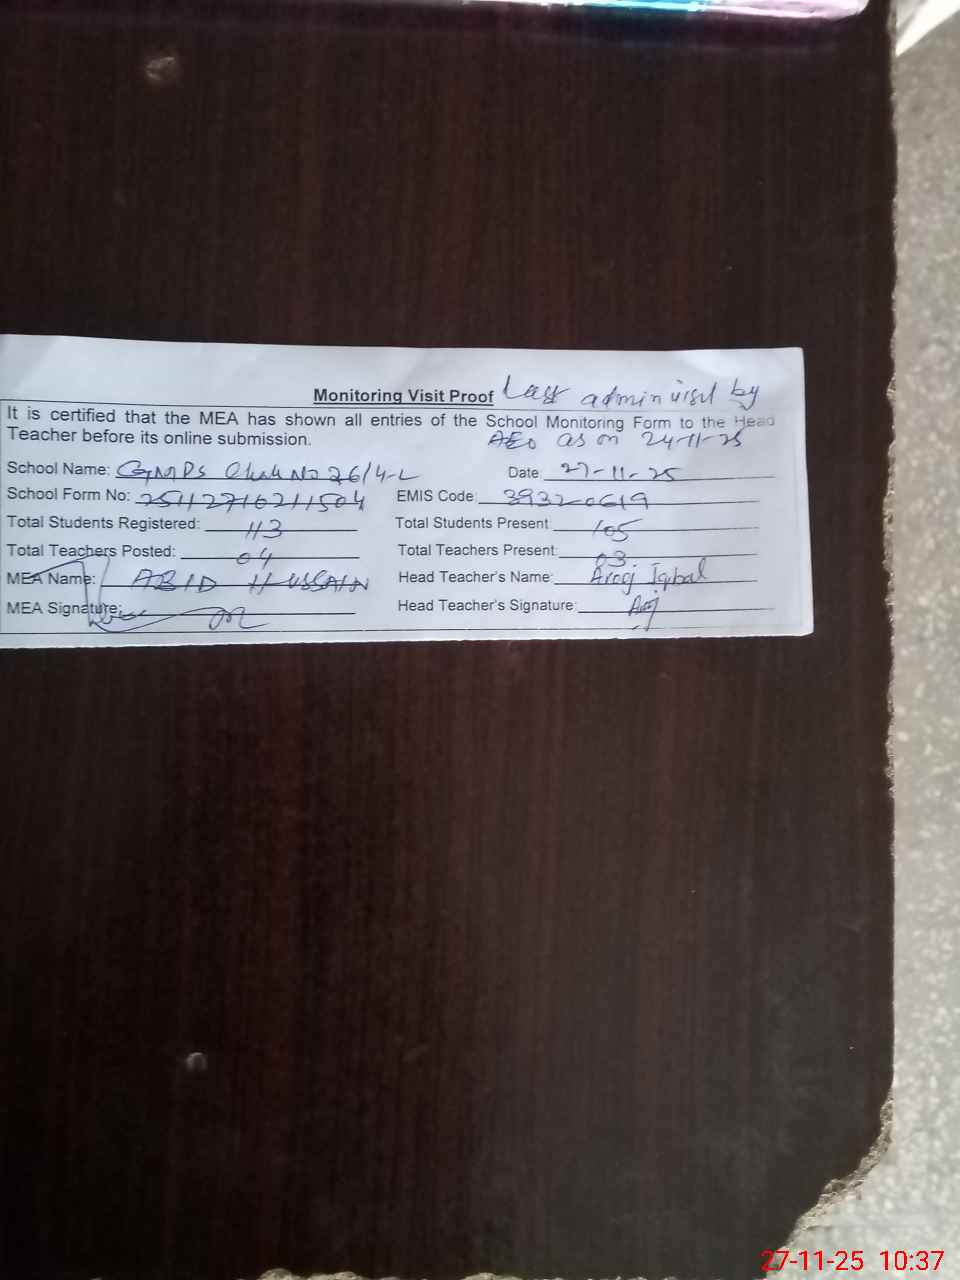 Monitoring Visit Proof Last admin visit by
It is certified that the MEA has shown all entries of the School Monitoring Form to the Head
AEO as on 24-11-25
Teacher before its online submission.
School Name: GMPS Chak No 26/4-L Date 27-11-25
School Form No: 25112710211504 EMIS Code: 39320619
Total Students Registered: 113 Total Students Present 105
Total Teachers Posted: 04 Total Teachers Present: 03
MEA Name: ABID HUSSAIN Head Teacher's Name: Arooj Iqbal
MEA Signature: Head Teacher's Signature:
27-11-25 10:37